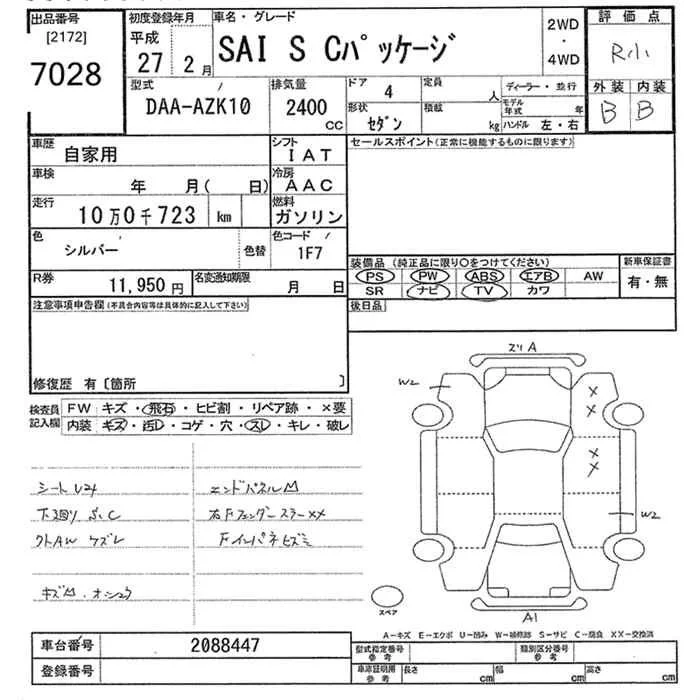 出品番号
[2172]
7028
初度登録年月
平成
27 2月
車名・グレード
SAI S Cパッケージ
2WD
・
4WD
評価点
R小
外装 内装
B B
型式
DAA-AZK10
排気量
2400
CC
ドア 4
形状
セダン
定員
人
積載
kg
ディーラー・並行
モデル年式 年
ハンドル 左・右
車歴
自家用
シフト
IAT
車検
年 月( 日)
冷房
AAC
走行
10万0千723 km
燃料
ガソリン
色
シルバー
色替
色コード
1F7
R券
11,950円
名変通知期限
月 日
セールスポイント(正常に機能するものに限ります)
装備品(純正品に限り○をつけてください)
PS PW ABS エアB AW
SR ナビ TV カワ
新車保証書
有・無
後日品
注意事項申告欄(不具合内容等は具体的に記入して下さい)
修復歴 有〔箇所 〕
検査員記入欄
FW キズ・飛石・ヒビ割・リペア跡・×要
内装 キズ・汚レ・コゲ・穴・スレ・キレ・破レ
シート
エンドパネル凹
下廻り C
右FフェンダーステーXX
AW ケズレ
Fインパネヒズミ
キズ凹
A
W2
×
×
×
×
W2
A1
スペア
A-キズ E-エクボ U-凹み W-補修跡 S-サビ C-腐食 XX-交換済
車台番号
2088447
登録番号
型式指定番号
参考
類別区分番号
参考
車庫証明用
参考
長さ cm
幅 cm
高さ cm